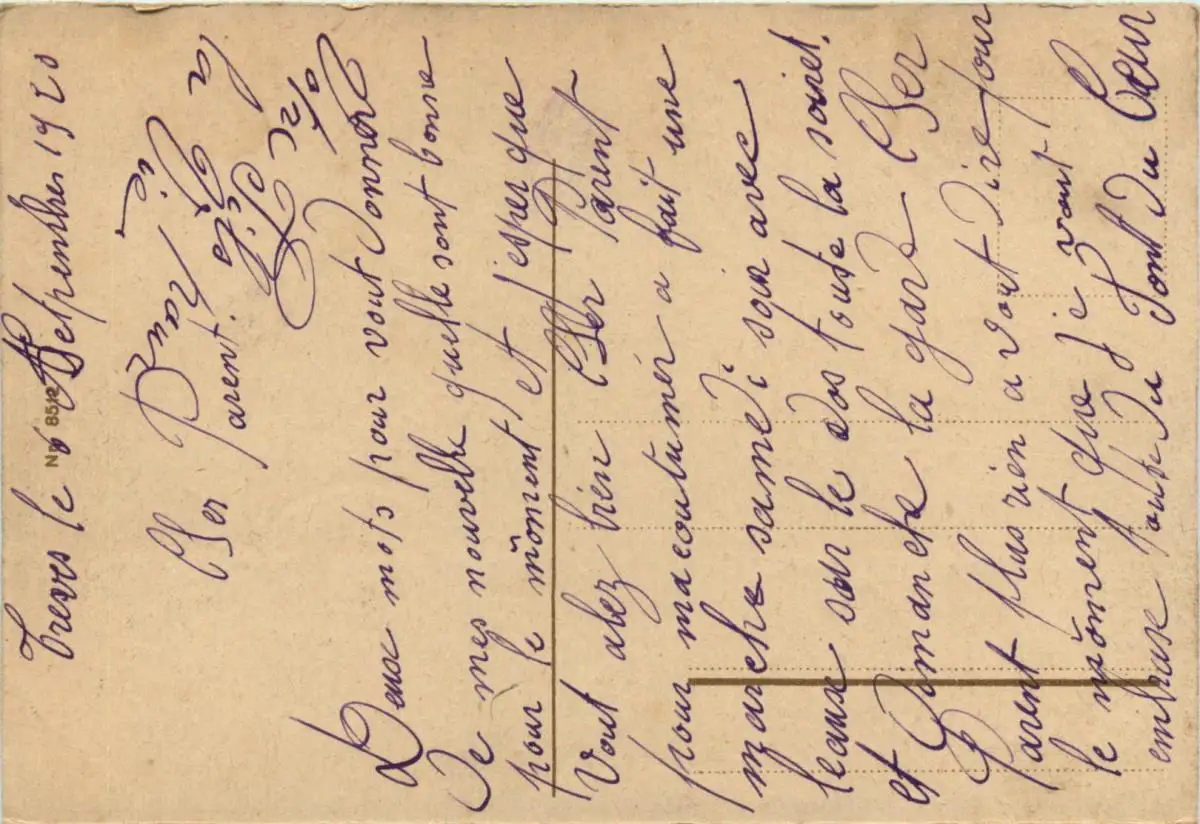 Treves le 6 Setpembre 1920
No 8512
Cher Parent
Deux mots pour vout donner
De mes nouvelle quelle sont bonne
pour le môment, et j'esper que
vout alez bien Cher Parent
pour ma coutumér a fait une
marche samedi soir avec
leaux sur le dos toute la soiret.
et Dimanche la garde Cher
Parent plus rien a vout dire pour
le môment que je vout
embrase toute du font du Cœur